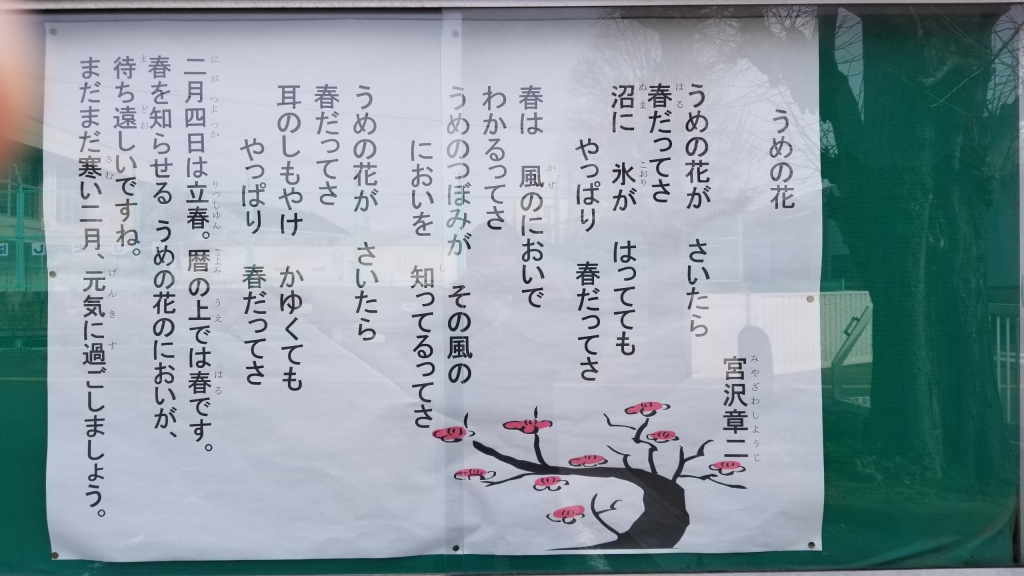 うめの花
宮沢章二
うめの花が　さいたら
春だってさ
沼に　氷が　はってても
やっぱり　春だってさ
春は　風のにおいで
わかるってさ
うめのつぼみが　その風の
においを　知ってるってさ
うめの花が　さいたら
春だってさ
耳のしもやけ　かゆくても
やっぱり　春だってさ
二月四日は立春。暦の上では春です。
春を知らせる　うめの花のにおいが、
待ち遠しいですね。
まだまだ寒い二月、元気に過ごしましょう。